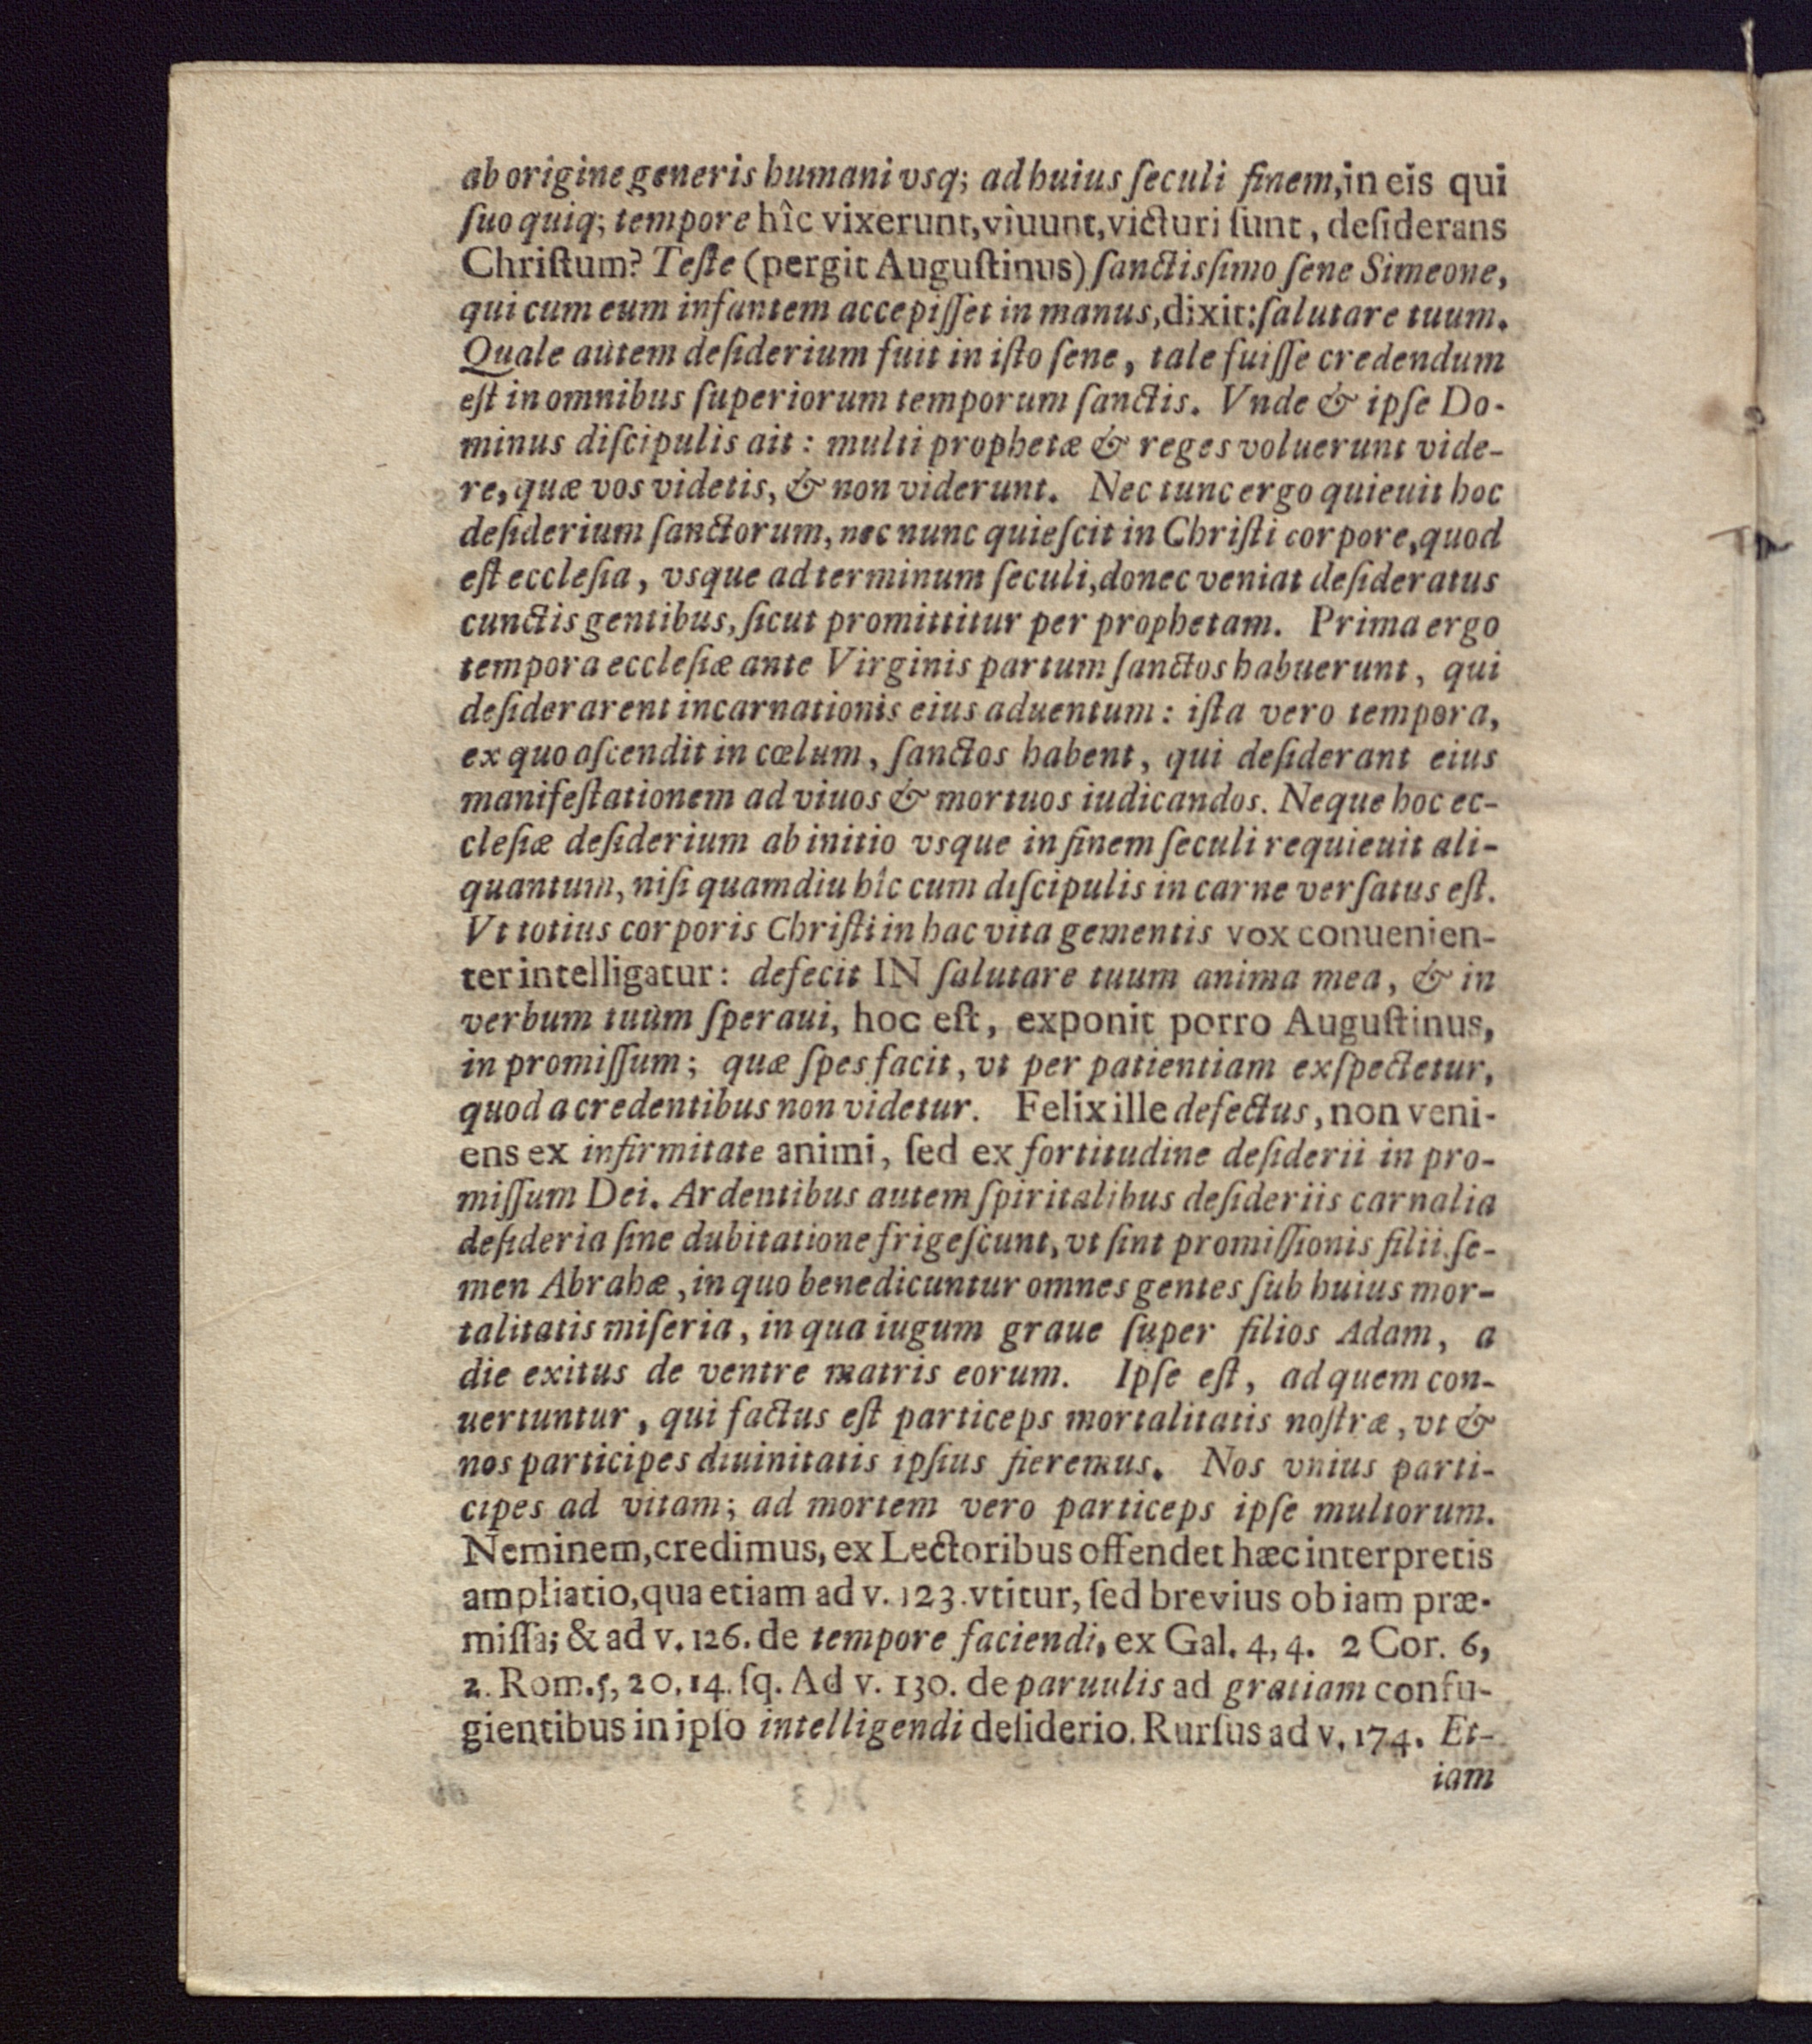 ab origine generis humani vsq; ad huius ſeculi finem, in eis qui
ſuo quiq; tempore hîc vixerunt, viuunt, victuri ſunt, deſiderans
Chriſtum? Teſte (pergit Auguſtinus) ſanctisſimo ſene Simeone,
qui cum eum infantem accepiſſet in manus, dixit: ſalutare tuum.
Quale autem deſiderium fuit in iſto ſene, tale fuiſſe credendum
eſt in omnibus ſuperiorum temporum ſanctis. Vnde & ipſe Do-
minus diſcipulis ait: multi prophetæ & reges voluerunt vide-
re, quæ vos videtis, & non viderunt. Nec tunc ergo quieuit hoc
deſiderium ſanctorum, nec nunc quieſcit in Chriſti corpore, quod
eſt eccleſia, vsque ad terminum ſeculi, donec veniat deſideratus
cunctis gentibus, ſicut promittitur per prophetam. Prima ergo
tempora eccleſiæ ante Virginis partum ſanctos habuerunt, qui
deſiderarent incarnationis eius aduentum: iſta vero tempora,
ex quo aſcendit in cœlum, ſanctos habent, qui deſiderant eius
manifeſtationem ad viuos & mortuos iudicandos. Neque hoc ec-
cleſiæ deſiderium ab initio vsque in finem ſeculi requieuit ali-
quantum, niſi quamdiu hîc cum diſcipulis in carne verſatus eſt.
Vt totius corporis Chriſti in hac vita gementis vox conuenien-
ter intelligatur: defecit IN ſalutare tuum anima mea, & in
verbum tuùm ſperaui, hoc eſt, exponit porro Auguſtinus,
in promiſſum; quæ ſpes facit, vt per patientiam exſpectetur,
quod a credentibus non videtur. Felix ille defectus, non veni-
ens ex infirmitate animi, ſed ex fortitudine deſiderii in pro-
miſſum Dei. Ardentibus autem ſpiritalibus deſideriis carnalia
deſideria ſine dubitatione frigeſcunt, vt ſint promiſſionis filii, ſe-
men Abrahæ, in quo benedicuntur omnes gentes ſub huius mor-
talitatis miſeria, in qua iugum graue ſuper filios Adam, a
die exitus de ventre matris eorum. Ipſe eſt, ad quem con-
uertuntur, qui factus eſt particeps mortalitatis noſtræ, vt &
nos participes diuinitatis ipſius fieremus. Nos vnius parti-
cipes ad vitam; ad mortem vero particeps ipſe multorum.
Neminem, credimus, ex Lectoribus offendet hæc interpretis
ampliatio, qua etiam ad v. 123. vtitur, ſed brevius ob iam præ-
miſſa; & ad v. 126. de tempore faciendi, ex Gal. 4, 4. 2 Cor. 6,
2. Rom. 5, 20. 14. ſq. Ad v. 130. de paruulis ad gratiam confu-
gientibus in ipſo intelligendi deſiderio. Rurſus ad v. 174. Et-
iam